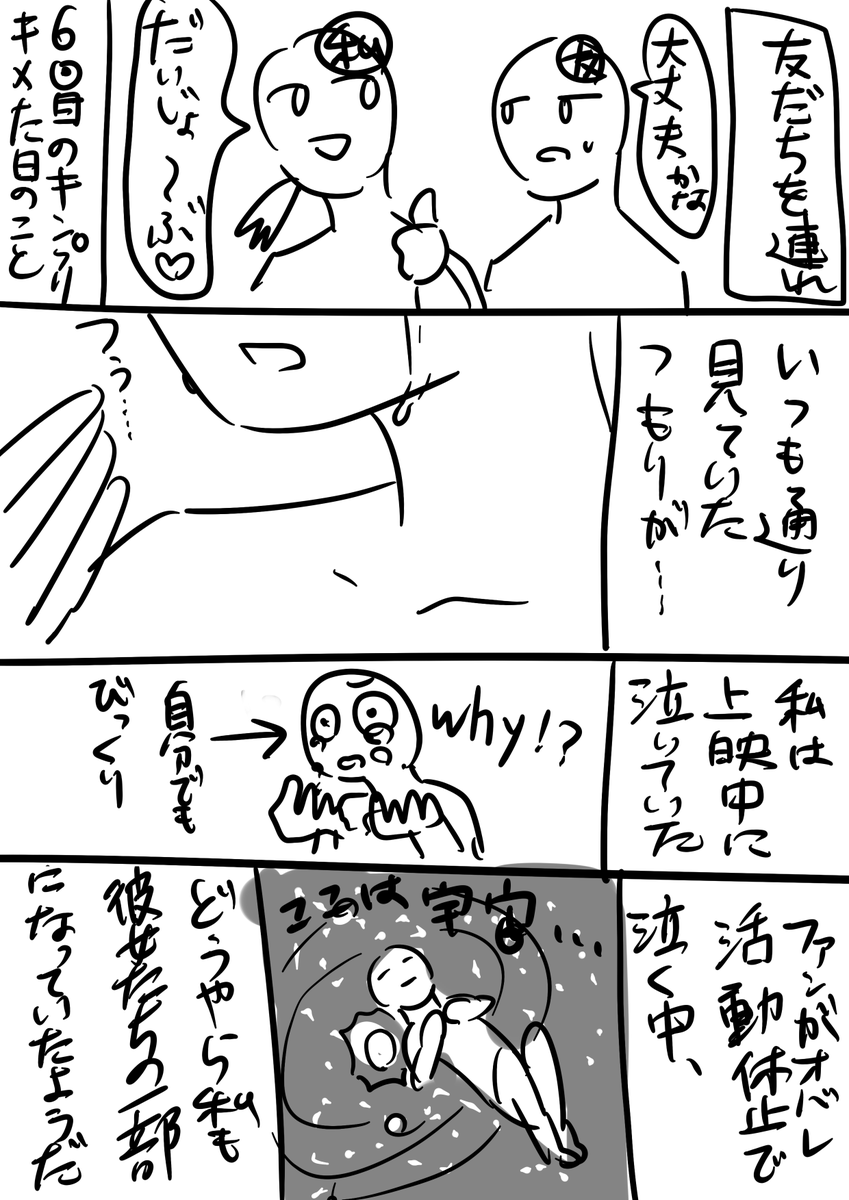 友だちを連れ
大丈夫
かな
友
私
だいじょ〜ぶ♡
6回目のキンプリ
キメた日のこと
いつも通り
見ていた
つもりが…
つぅ…
私は
上映中に
泣いていた
why!?
自分でも
びっくり
ファンがオバレ
活動休止で
泣く中、
ここは宇宙…
どうやら私も
彼女たちの一部
になっていたようだ